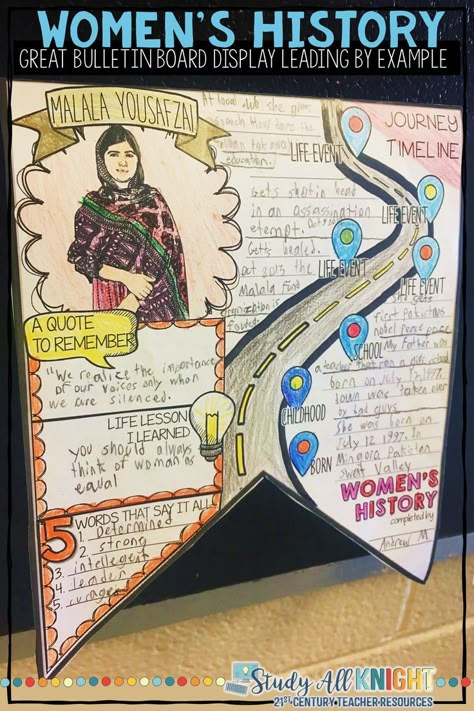 WOMEN'S HISTORY
GREAT BULLETIN BOARD DISPLAY LEADING BY EXAMPLE
MALALA YOUSAFZAI
A QUOTE
TO REMEMBER
"We realize the importance
of our voices only when
we are silenced.
LIFE LESSON
I LEARNED
you should always
think of woman as
equal
5 WORDS THAT SAY IT ALL
1. Determined
2. strong
3. intellegent
4. leader
5.
JOURNEY
TIMELINE
At local she gives
speach How
education.
LIFE EVENT
Gets shot in head
in an assassination
LIFE EVENT
Gets healed.
at 2013 the
Malala fund
LIFE EVENT
LIFE EVENT
she gets
first Pakistans
nobel Peace prize
SCHOOL
My Father was
a teacher that ran a girls school
born on July 12, 1997.
town was taken over
by bad guys
CHILDHOOD
She was born on
July 12 1997. In
Mingora Pakistan
Swat Valley
BORN
WOMEN'S
HISTORY
completed by
Andrew M
Study All KNIGHT
21ST CENTURY TEACHER RESOURCES